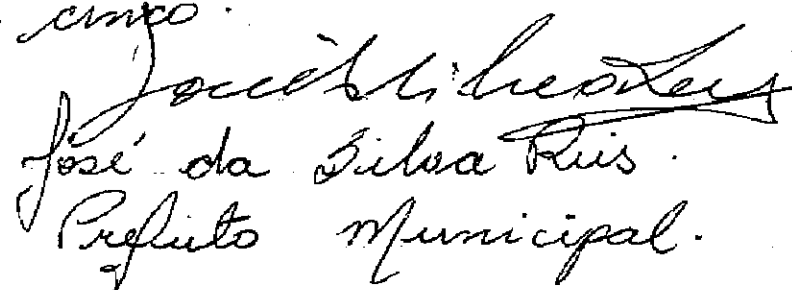 cinco.
José da Silva Reis.
Prefeito Municipal.